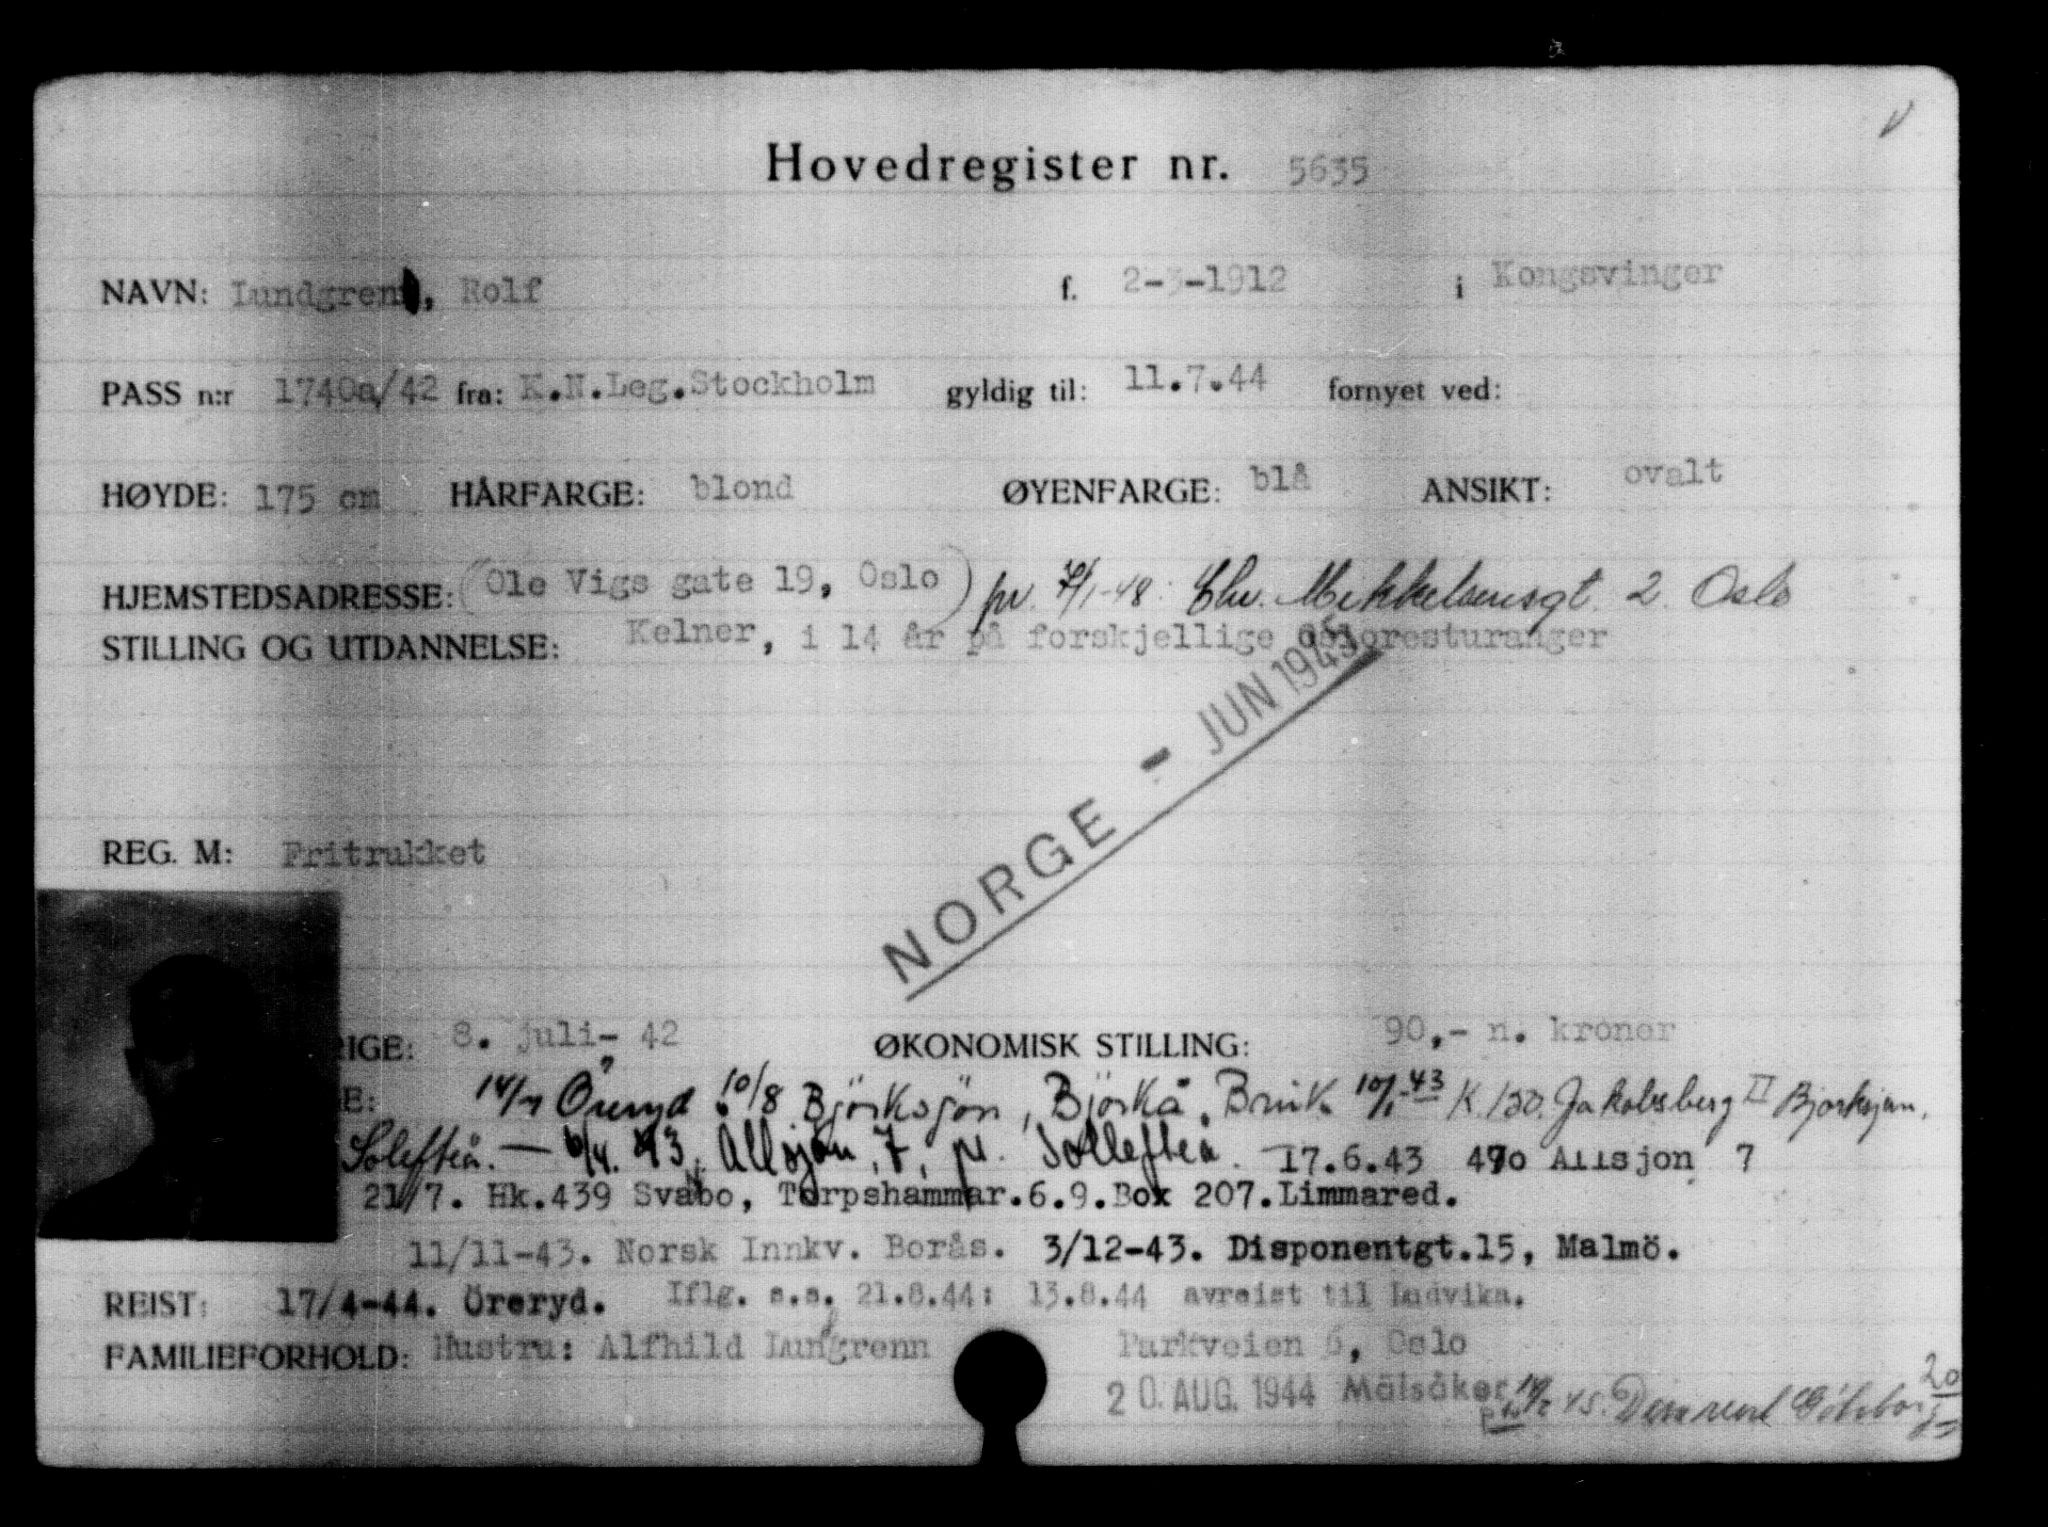 Hovedregister nr. 5635
NAVN: Lundgren, Rolf f. 2-3-1912 i Kongsvinger
PASS n:r 1740a/42 fra: K.N.Leg.Stockholm gyldig til: 11.7.44 fornyet ved:
HØYDE: 175 cm HÅRFARGE: blond ØYENFARGE: blå ANSIKT: ovalt
HJEMSTEDSADRESSE: (Ole Vigs gate 19, Oslo) pr. 7/1-48: Chr. Mikkelsensgt. 2. Oslo
STILLING OG UTDANNELSE: Kelner, i 14 år på forskjellige Osloresturanger
NORGE - JUN 1945
REG. M: Fritrukket
RIGE: 8. juli- 42 ØKONOMISK STILLING: 90,- n. kroner
E: 14/7 Öreryd. 10/8 Björksjön, Björkå, Bruk. 10/1-43 K.130. Jakobsberg II Björksjön,
Solefteå. — 6/4. 43. Allsjön, 7, pr. Sollefteå. 17.6.43 470 Allsjon 7
21/7. Hk.439 Svabo, Torpshammar.6.9.Box 207.Limmared.
11/11-43. Norsk Innkv. Borås. 3/12-43. Disponentgt.15, Malmö.
REIST: 17/4-44. Öreryd. Iflg. s.s. 21.8.44: 13.8.44 avreist til Ludvika.
FAMILIEFORHOLD: Hustru: Alfhild Lungrenn Parkveien 6, Oslo
20. AUG. 1944 Mälsåker